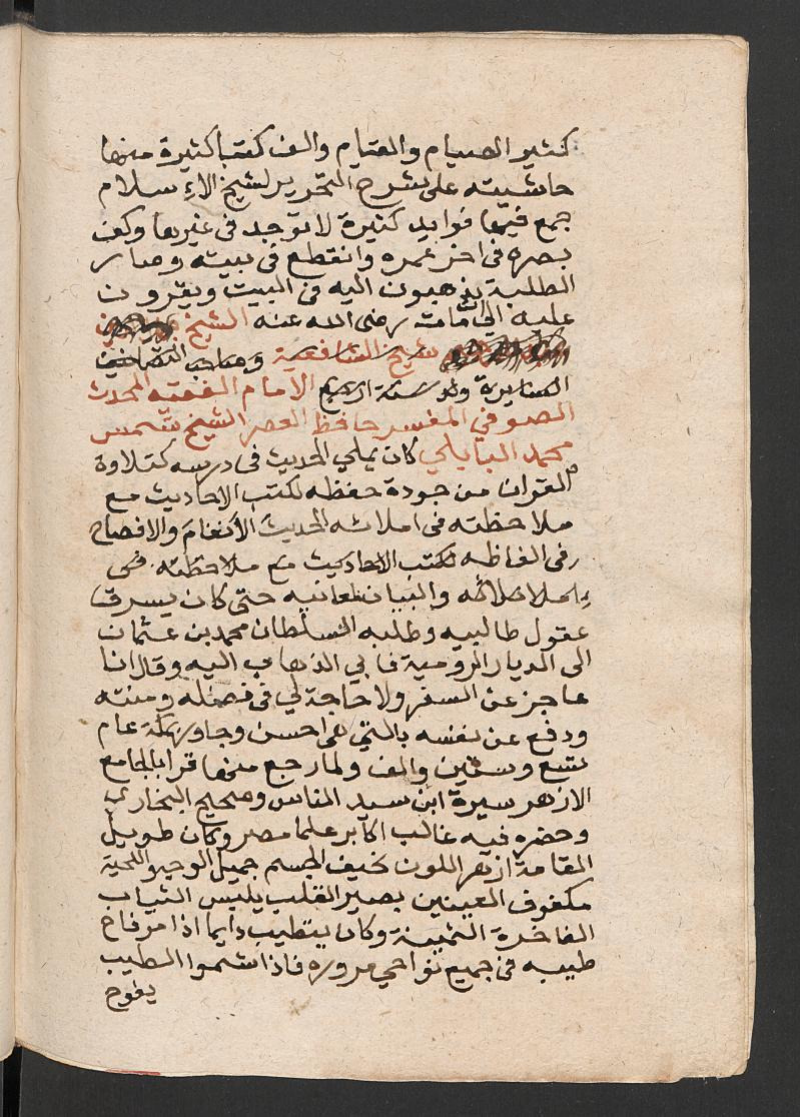 كثير الصيام والقيام والف كتبا كثيرة منها
حاشيته على شرح التحرير لشيخ الاسلام
جمع فيها فوايد كثيرة لا توجد في غيرها وكف
بصره في اخر عمره وانقطع في بيته وصار
الطلبة يذهبون اليه في البيت ويقرون
عليه الي ان مات رضى الله عنه الشيخ
شيخ الشافعية وصاحب التصانيف
السايرة ولد سنة اربع الامام الفقيه المحدث
الصوفي المفسر حافظ العصر الشيخ شمس
محمد البابلي كان يملي الحديث في درسه كتلاوة
القران من جودة حفظه لكتب الاحاديث مع
ملاحظته في املائه الحديث الأنغام والافصاح
في الفاظه لكتب الاحاديث مع ملاحظته في
والبيان لمعانيه حتى كان يسرق
عقول طالبيه وطلبه السلطان محمد بن عثمان
الى الديار الرومية فابي الذهاب اليه وقال انا
عاجز عن السفر ولا حاجة لي في فضله ومنته
ودفع عن نفسه بالتي هي احسن وجاور بمكة عام
تسع وستين والف ولما رجع منها قرا بالجامع
الازهر سيرة ابن سيد الناس وصحيح البخاري
وحضره فيه غالب اكابر علما مصر وكان طويل
القامة ازهر اللون نحيف الجسم جميل الوجه واللحية
مكفوف العينين بصير القلب يلبس الثياب
الفاخرة الثمينة وكان يتطيب دايما اذا مر فاح
طيبه في جميع نواحي مروره فاذا شموا الطيب
يفوح